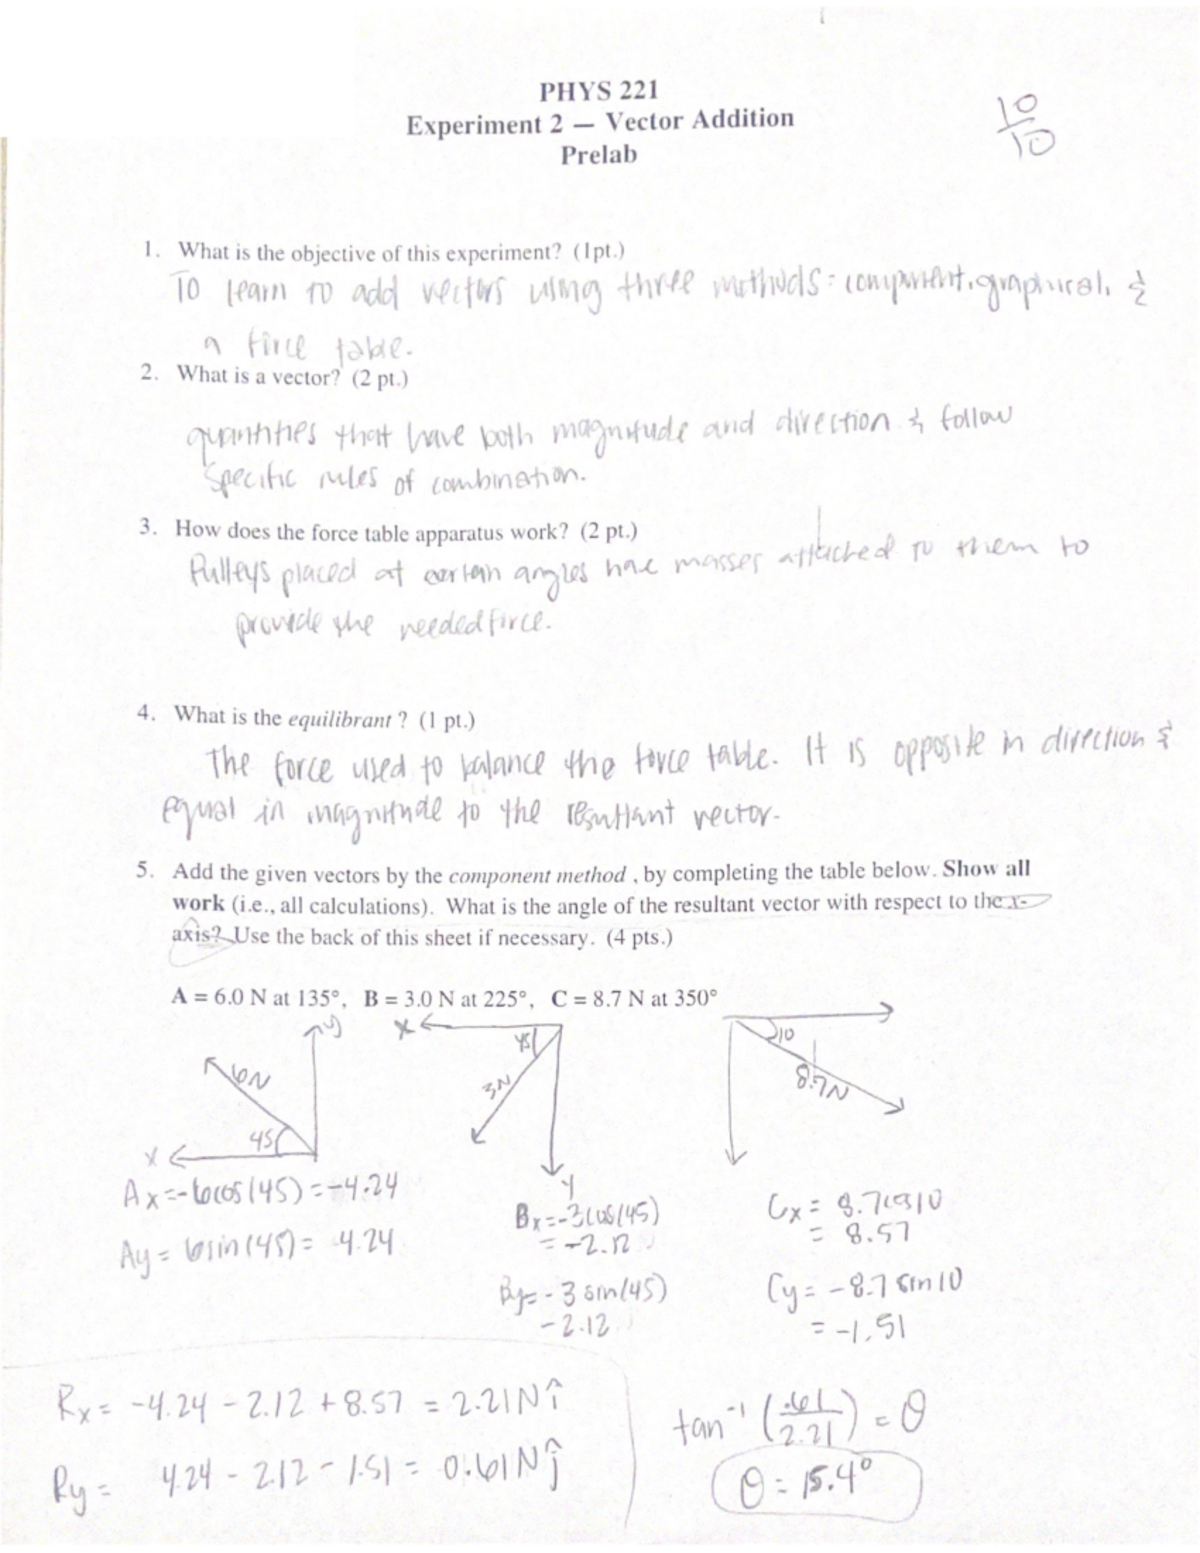 PHYS 221
Experiment 2 — Vector Addition
Prelab
10/10
1. What is the objective of this experiment? (1pt.)
To learn to add vectors using three methods: component, graphical, &
a force table.
2. What is a vector? (2 pt.)
quantities that have both magnitude and direction & follow
specific rules of combination.
3. How does the force table apparatus work? (2 pt.)
Pulleys placed at certain angles have masses attached to them to
provide the needed force.
4. What is the equilibrant ? (1 pt.)
The force used to balance the force table. It is opposite in direction &
equal in magnitude to the resultant vector.
5. Add the given vectors by the component method , by completing the table below. Show all
work (i.e., all calculations). What is the angle of the resultant vector with respect to the x-
axis? Use the back of this sheet if necessary. (4 pts.)
A = 6.0 N at 135°, B = 3.0 N at 225°, C = 8.7 N at 350°
y
6N
45
x
x
45
3N
y
10
8.7N
Ax = -6cos(45) = -4.24
Ay = 6sin(45) = 4.24
Bx = -3cos(45)
= -2.12
By = -3 sin(45)
-2.12
Cx = 8.7cos10
= 8.57
Cy = -8.7 sin10
= -1.51
Rx = -4.24 - 2.12 + 8.57 = 2.21N î
Ry = 4.24 - 2.12 - 1.51 = 0.61N ĵ
tan⁻¹ (.61/2.21) = θ
θ = 15.4°